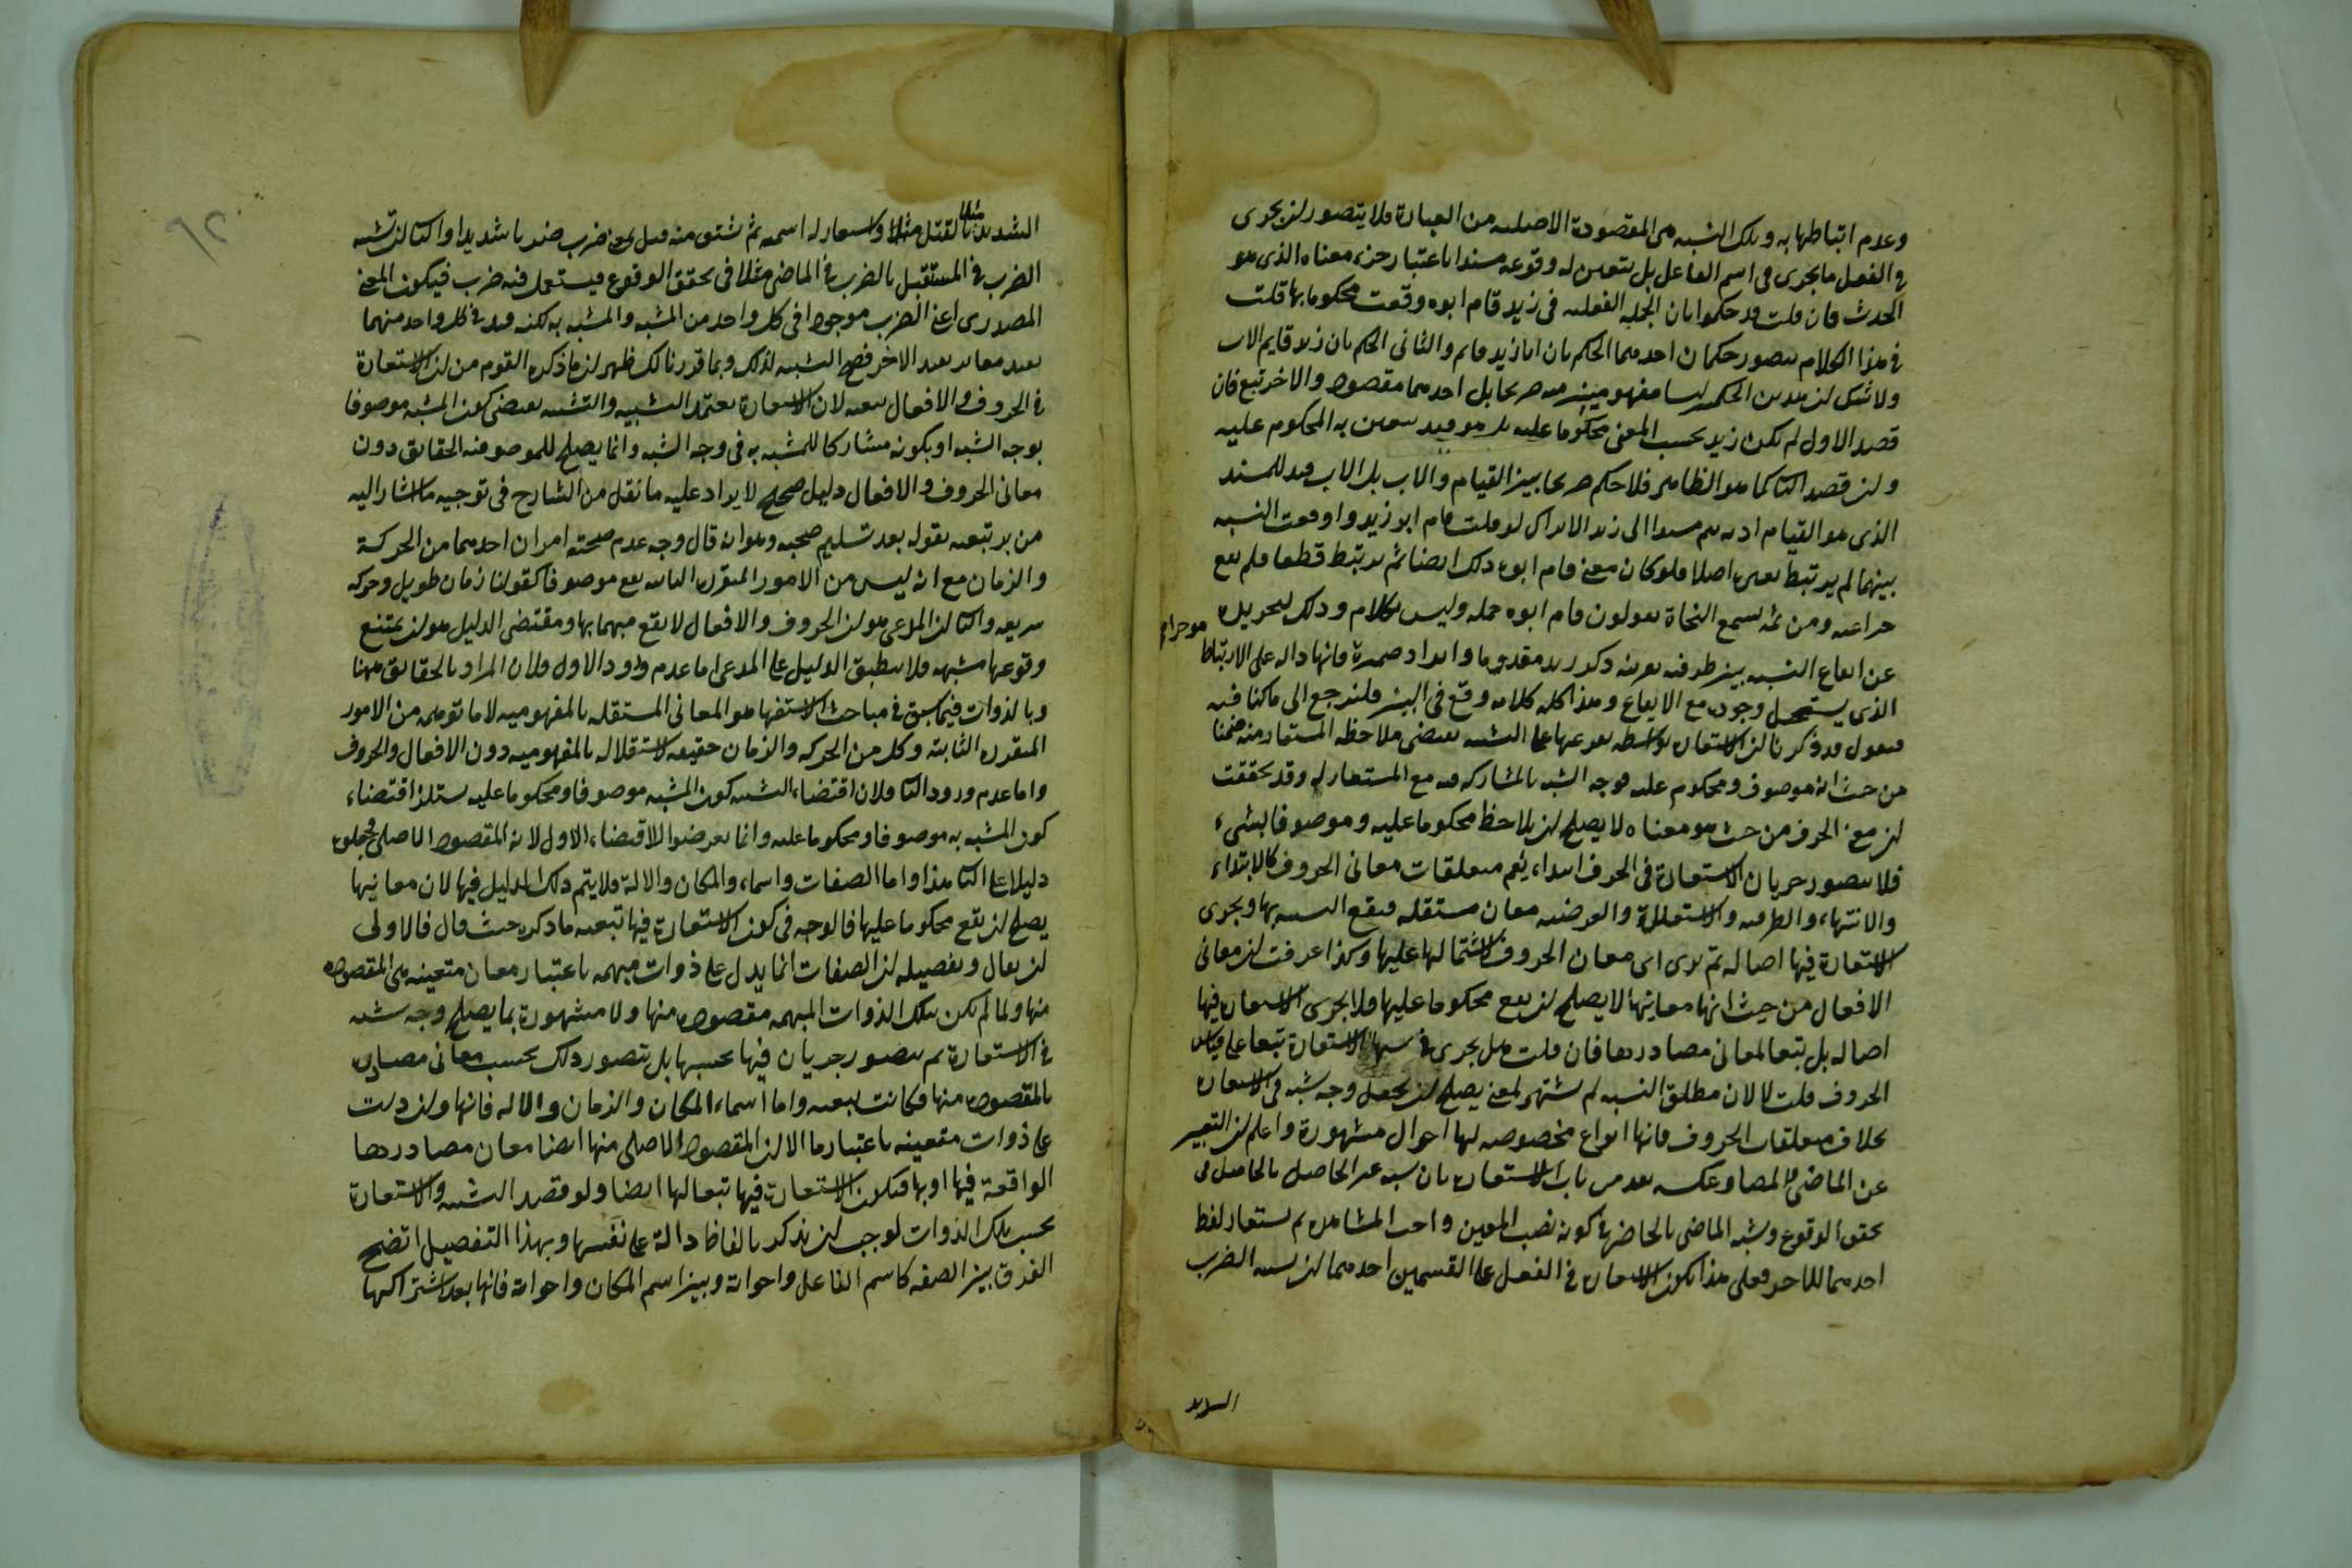 وعدم ارتباطها به وتلك النسبة هى المقصودة الاصلية من العبارة فلا يتصور لن يجرى
فى الفعل ما يجرى فى اسم الفاعل بل يتعين له وقوعه مسندا باعتبار جزء معناه الذى هو
الحدث فان قلت قد حكموا بان الجملة الفعلية فى زيد قام ابوه وقعت محكوما بها قلت
فى هذا الكلام يتصور حكمان احدهما الحكم بان ابا زيد قايم والثانى الحكم بان زيدا قايم الاب
ولا شك لن هذين الحكمين ليسا مفهومين منه صريحا بل احدهما مقصود والاخر تبع فان
قصد الاول لم يكن زيد بحسب المعنى محكوما عليه بل هو قيد يتعين به المحكوم عليه
ولن قصد الثانى كما هو الظاهر فلا حكم صريحا بين القيام والاب بل الاب قيد للمسند
الذى هو القيام اذ به يتم مسندا الى زيد الا يرى انك لو قلت قام ابو زيد واوقعت النسبة
بينهما لم يرتبط بغيره اصلا فلو كان معنى قام ابوه ذلك ايضا لم يرتبط قطعا فلم يقع
خبرا عنه ومن ثمه تسمع النحاة يقولون قام ابوه جملة وليس بكلام وذلك لتجريده
عن ايقاع النسبة بين طرفيه بقرينة ذكر زيد مقدوما وايراد ضميره فانها دالة على الارتباط
الذى يستحيل وجوده مع الايقاع وهذا كله كلام وقع فى البين فلنرجع الى ما كنا فيه
فنقول قد ذكرنا لن الاستعارة بواسطة تفرعها على التشبيه تقتضى ملاحظة المستعار منه ضمنا
من حيث انه موصوف ومحكوم عليه بوجه الشبه بالمشاركة فيه مع المستعار له وقد تحققت
لن معنى الحرف من حيث هو معناه لا يصلح لن يلاحظ محكوما عليه وموصوفا بشىء
فلا يتصور جريان الاستعارة فى الحرف ابتداء نعم متعلقات معانى الحروف كالابتداء
والانتهاء والظرفية والاستعلاء والغرضية معان مستقلة فيقع التشبيه بها ويجرى
الاستعارة فيها اصالة ثم يسرى الى معان الحروف لاشتمالها عليها وكذا عرفت لن معانى
الافعال من حيث انها معانيها لا يصلح لن يقع محكوما عليها فلا يجرى الاستعارة فيها
اصالة بل تبعا لمعانى مصادرها فان قلت هل يجرى فى نسبها الاستعارة تبعا على قياس
الحروف قلت لا لان مطلق النسبة لم تشتهر لمعنى يصلح لن يجعل وجه شبه فى الاستعارة
بخلاف متعلقات الحروف فانها انواع مخصوصة لها احوال مشهورة واعلم لن التعبير
عن الماضى بالمضارع وعكسه يعد من باب الاستعارة بان يشبه غير الحاصل بالحاصل فى
تحقق الوقوع ويشبه الماضى بالحاضر فى كونه نصب العين واجب المشاهدة ثم يستعار لفظ
احدهما للاخر فعلى هذا يكون الاستعارة فى الفعل على القسمين احدهما لن يشبه الضرب
الشديد
الشديد بالقتل مثلا ويستعار له اسمه ثم يشتق منه قتل بمعنى ضرب ضربا شديدا والثانى لن يشبه
الضرب فى المستقبل بالضرب فى الماضى مثلا فى تحقق الوقوع فيستعمل فيه ضرب فيكون المعنى
المصدرى اعنى الضرب موجودا فى كل واحد من المشبه والمشبه به لكنه قيد فى كل واحد منهما
بقيد مغاير لقيد الاخر فصح التشبيه لذلك وبما قررنا لك ظهر لن ما ذكره القوم من لن الاستعارة
فى الحروف والافعال تبعية لان الاستعارة تعتمد التشبيه والتشبيه يقتضى كون المشبه موصوفا
بوجه الشبه او بكونه مشاركا للمشبه به فى وجه الشبه وانما يصلح للموصوفية الحقايق دون
معانى الحروف والافعال دليل صحيح لا يراد عليه ما نقل من الشارح فى توجيه ما اشار اليه
من برتبعيه بقوله بعد تسليم صحته وهو انه قال وجه عدم صحته امران احدهما من الحركة
والزمان مع انه ليس من الامور المتقررة الثابتة يقع موصوفا كقولنا زمان طويل وحركة
سريعة والثانى لن المدعى هو لن الحروف والافعال لا يقع مشبها بها ومقتضى الدليل هو لن يمتنع
وقوعها مشبهة فلا ينطبق الدليل على المدعى اما عدم ورود الاول فلان المراد بالحقايق ههنا
وبالذوات فيما سبق فى مباحث الاستفهام هو المعانى المستقلة بالمفهومية لا ما توهمه من الامور
المتقررة الثابتة وكل من الحركة والزمان حقيقة لاستقلاله بالمفهومية دون الافعال والحروف
واما عدم ورود الثانى فلان اقتضاء التشبيه كون المشبه موصوفا ومحكوما عليه يستلزم اقتضاء
كون المشبه به موصوفا ومحكوما عليه وانما تعرضوا لاقتضاء الاول لانه المقصود الاصلى وجعلوه
دليلا على الثانى هذا واما الصفات واسماء والمكان والالة فلا يتم ذلك الدليل فيها لان معانيها
يصلح لن يقع محكوما عليها فالوجه فى كون الاستعارة فيها تبعية ما ذكره حيث قال فالاولى
لن يقال وتفصيله لن الصفات انما يدل على ذوات مبهمة باعتبار معان متعينة هى المقصودة
منها ولما لم يكن تلك الذوات المبهمة مقصودة منها ولا مشهورة بما يصلح وجه شبه
فى الاستعارة لم يتصور جريان فيها بحسبها بل يتصور ذلك بحسب معانى مصادره
المقصودة منها فكانت تبعية واما اسماء المكان والزمان والالة فانها ولن دلت
على ذوات متعينة باعتبار ما الا لن المقصود الاصلى منها ايضا معان مصادرها
الواقعة فيها او بها فيكون الاستعارة فيها تبعا لها ايضا ولو قصد التشبيه والاستعارة
بحسب تلك الذوات لوجب لن يذكر بالفاظ دالة على نفسها وبهذا التفصيل اتضح
الفرق بين الصفة كاسم الفاعل واخواته وبين اسم المكان واخواته فانها بعد اشتراكها